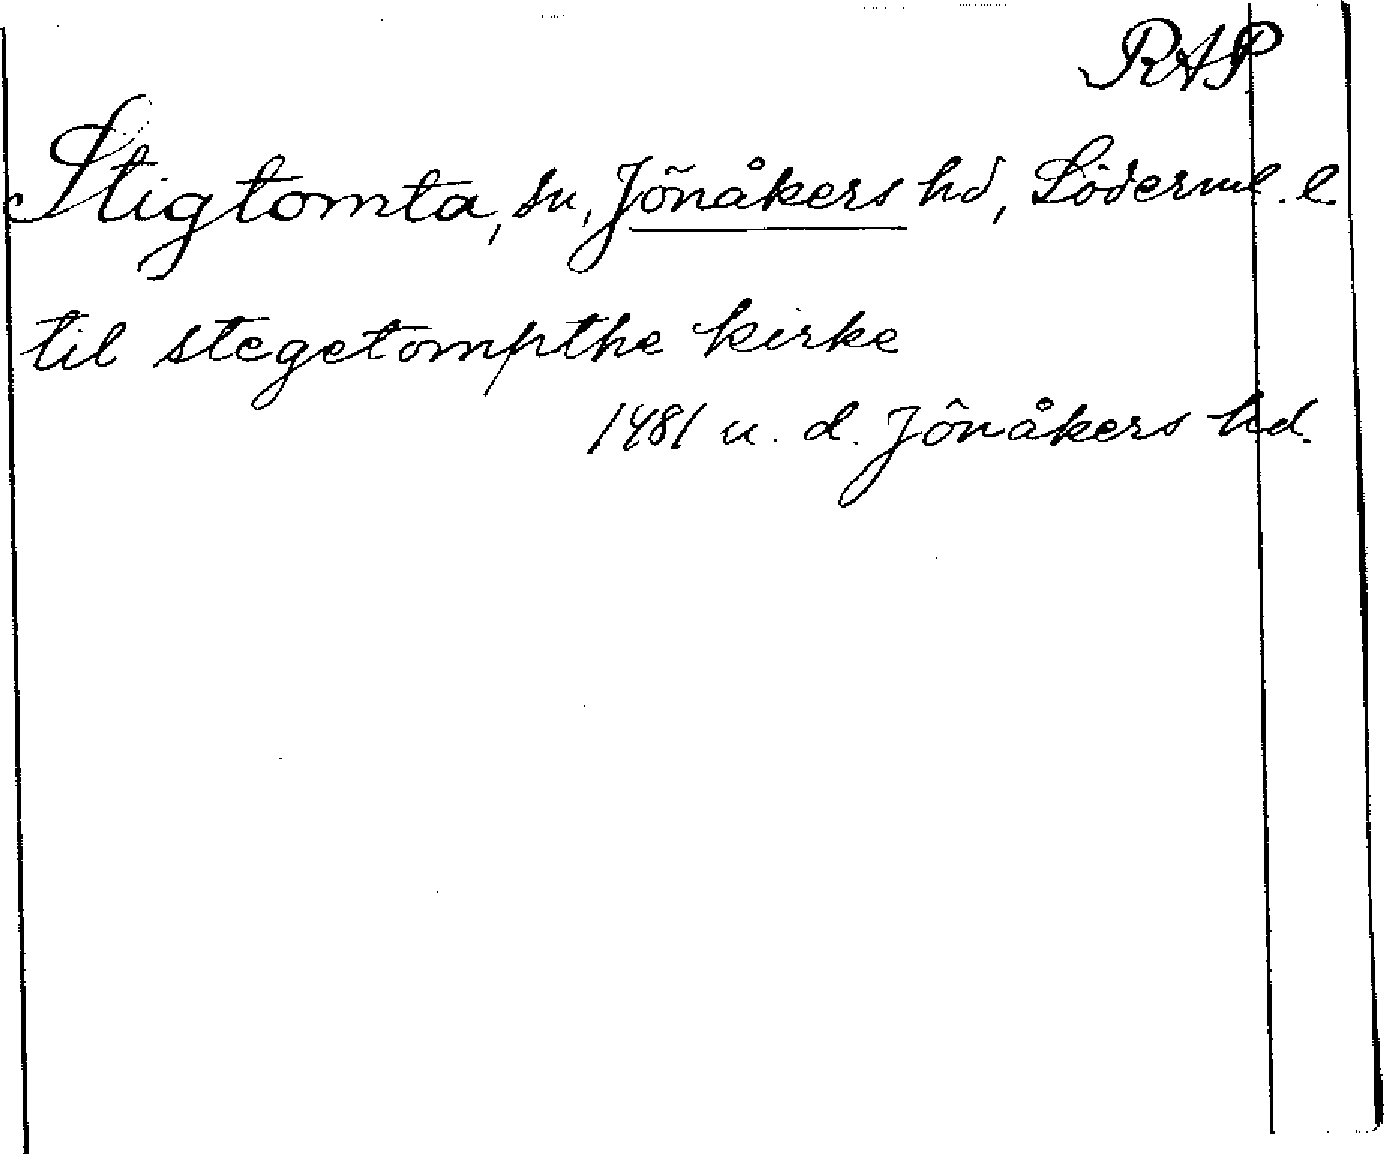 RAP
Stigtomta, sn, Jönåkers hd, Söderml. l.
til stegetompthe kirke
1481 u. d. Jönåkers hd.